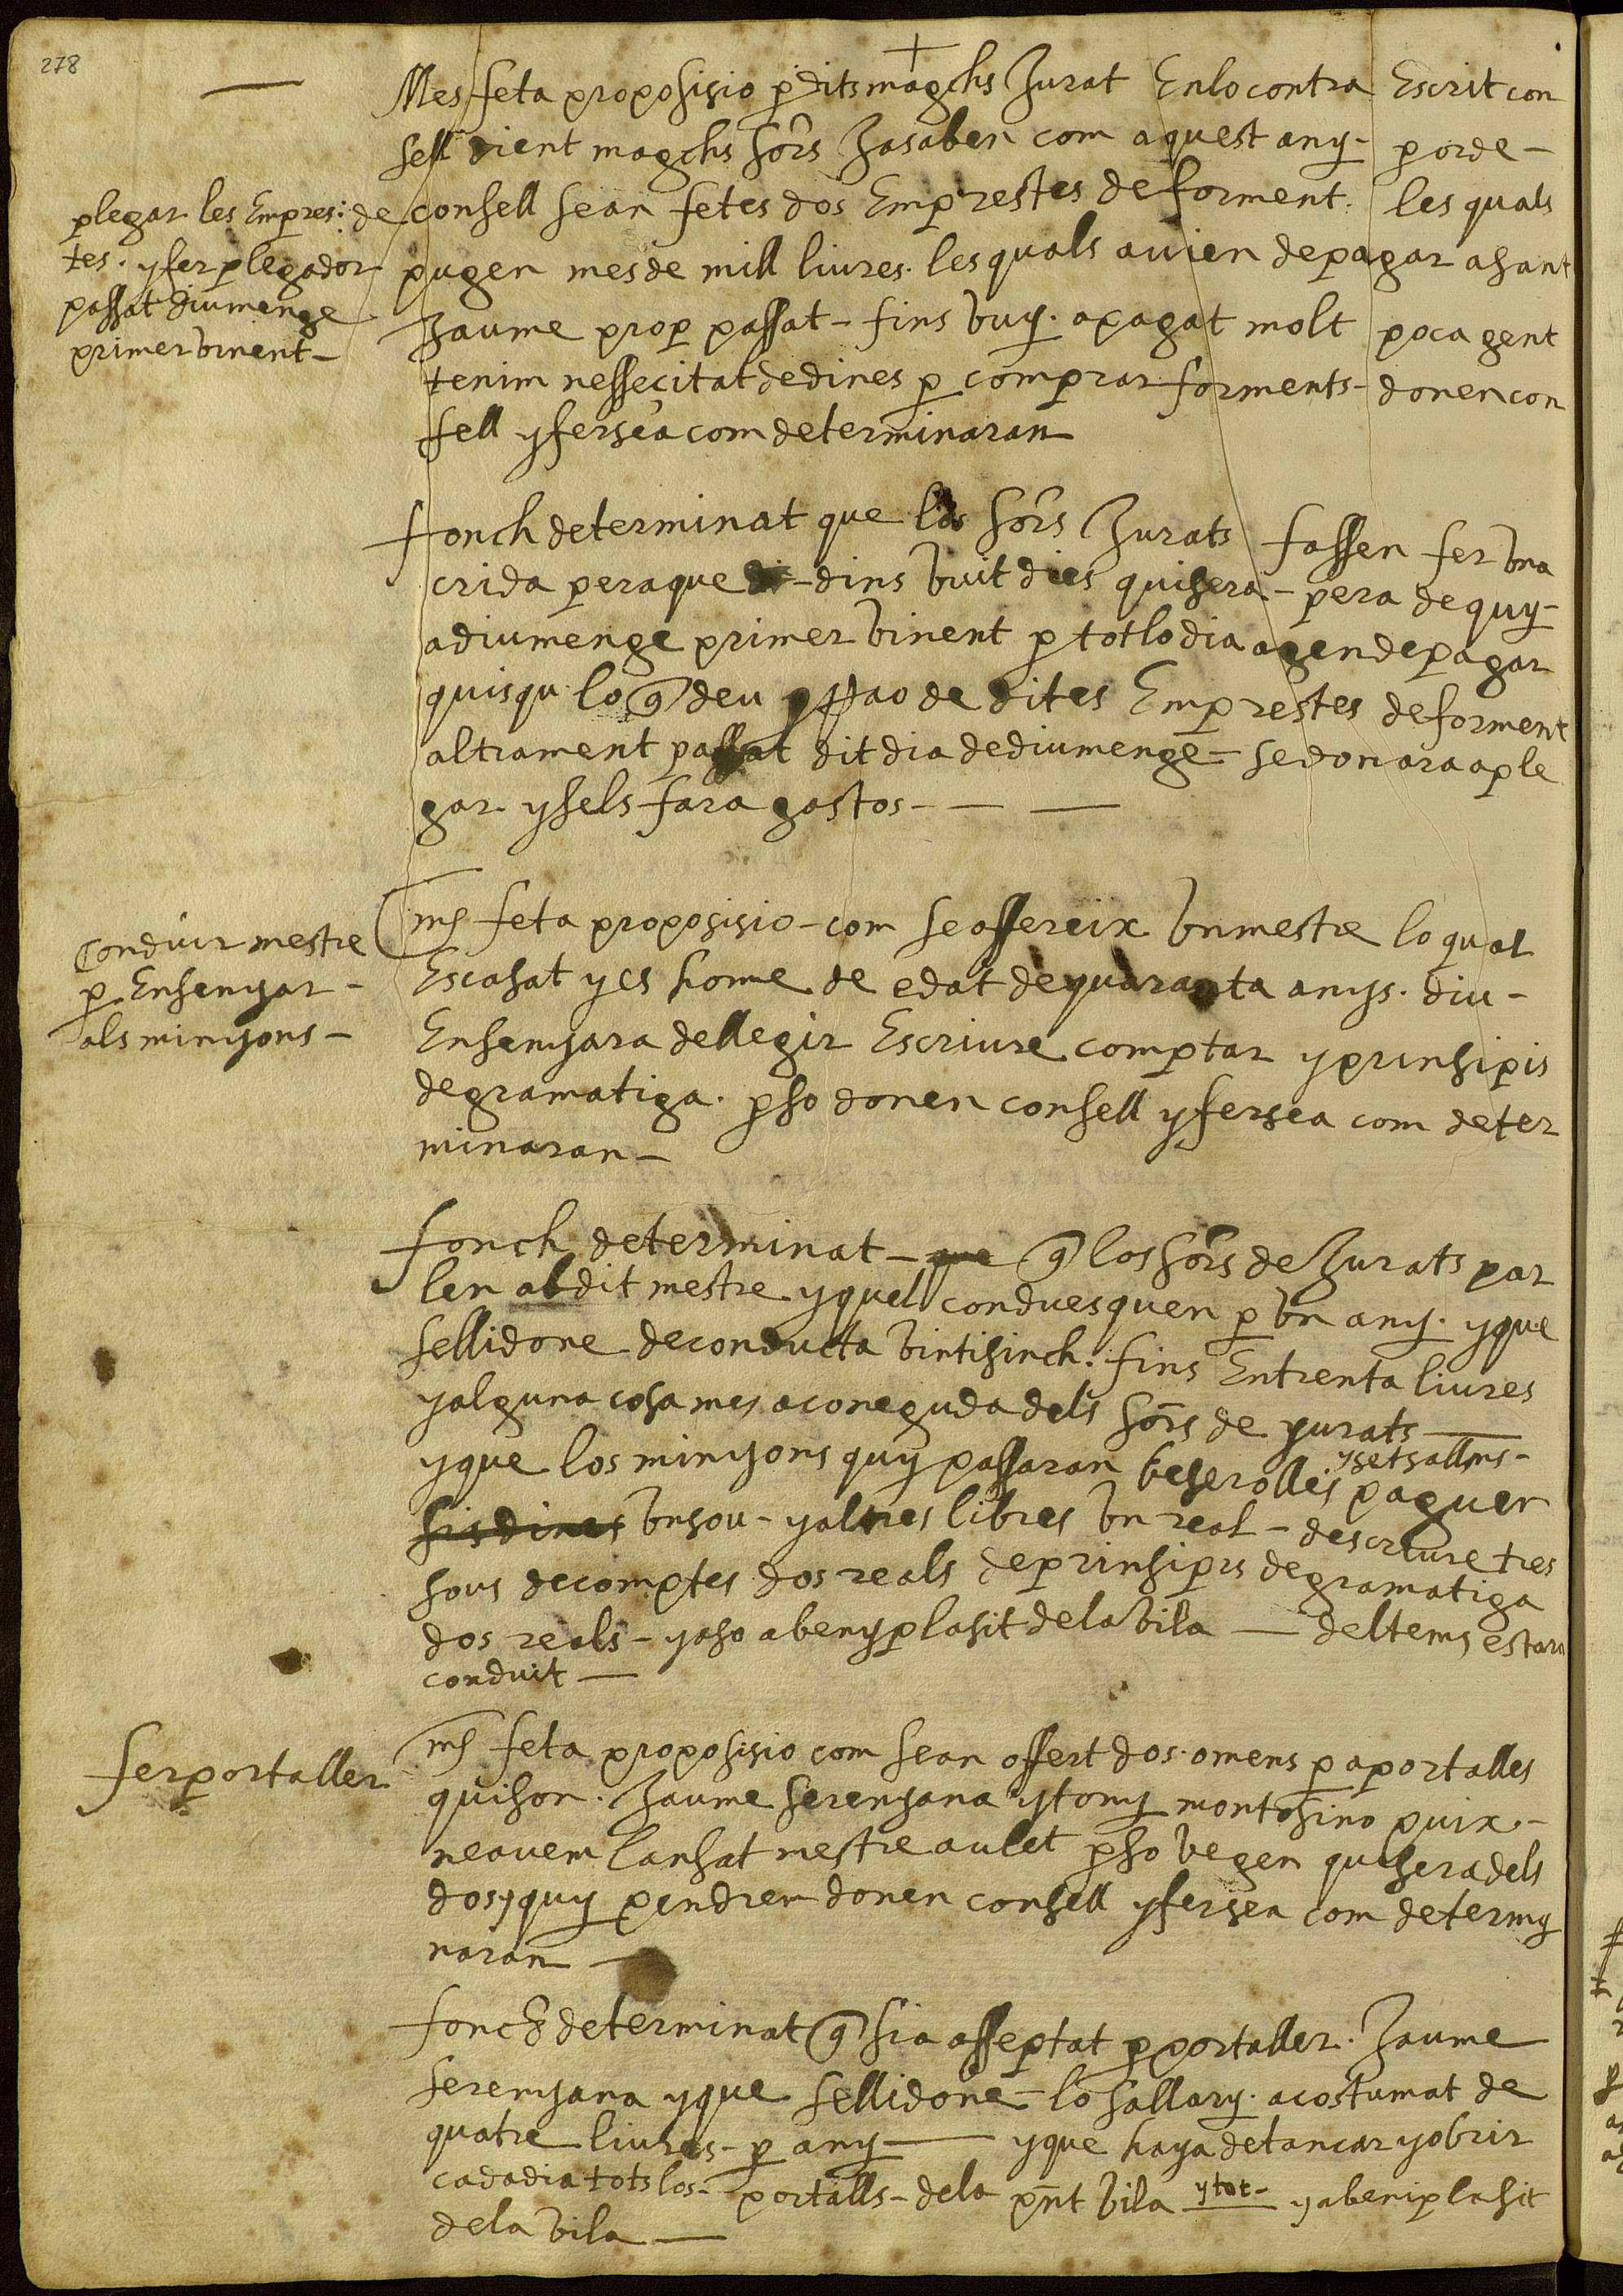 278
Mes feta proposisio p dits magchs Jurat En lo contra Escrit con
sell dient magchs sors Ja saben com aquest any - p orde -
de consell sean fetes dos Emprestes de forment. les quals
pugen mes de mill liures. les quals auien de pagar a sant
Jaume prop passat - fins vuy. a pagat molt poca gent
tenim nessecitat de dines p comprar forments - donen con
sell y fersea com determinaran
plegar les Empres:
tes. y fer plegador
passat diumenge
primer vinent -
fonch determinat que los sors Jurats fassen fer vna
crida pera que dins vuit dies qui sera - pera de quy -
a diumenge primer vinent p tot lo dia agen de pagar
quisqu lo q deu de dites Emprestes de forment
altrament passat dit dia de diumenge - se donara a ple
gar y sels fara gastos -
Conduir mestre
p Ensenyar -
als minyons -
ms feta proposisio - com se offereix vn mestre lo qual
Es casat y es home de edat de quaranta anys. diu -
Ensenyara de llegir Escriure comptar y prinsipis
de gramatiga. p so donen consell y fersea com deter
minaran -
fonch determinat - que q los sors de Jurats par
len ab dit mestre y quell conduesquen p vn any. y que
selli done de conducta vintisinch. fins En trenta liures
y alguna cosa mes a coneguda dels sors de yurats
y que los minyons quy passaran beserolles y set sallms - paguen
sis dines vn sou - y altres libres vn real - descriure tres
sous de comptes dos reals de prinsipis de gramatiga
dos reals - y aso a beny plasit de la vila - del tems estara
conduit -
fer portaller
ms feta proposisio com sean offert dos omens p a portalles
qui son. Jaume serenyana y tony montosino puix -
ne auem lansat mestre aulet p so vegen qui sera dels
dos y quy pendrem donen consell y fersea com determy
naran
fonch determinat q sia asseptat p portaller. Jaume
serenyana y que selli done - lo sallary. acostumat de
quatre liures - p any - y que haya de tancar y obrir
cada dia tots los - portalls - de la pnt vila y tot - y a beniplasit
de la vila -